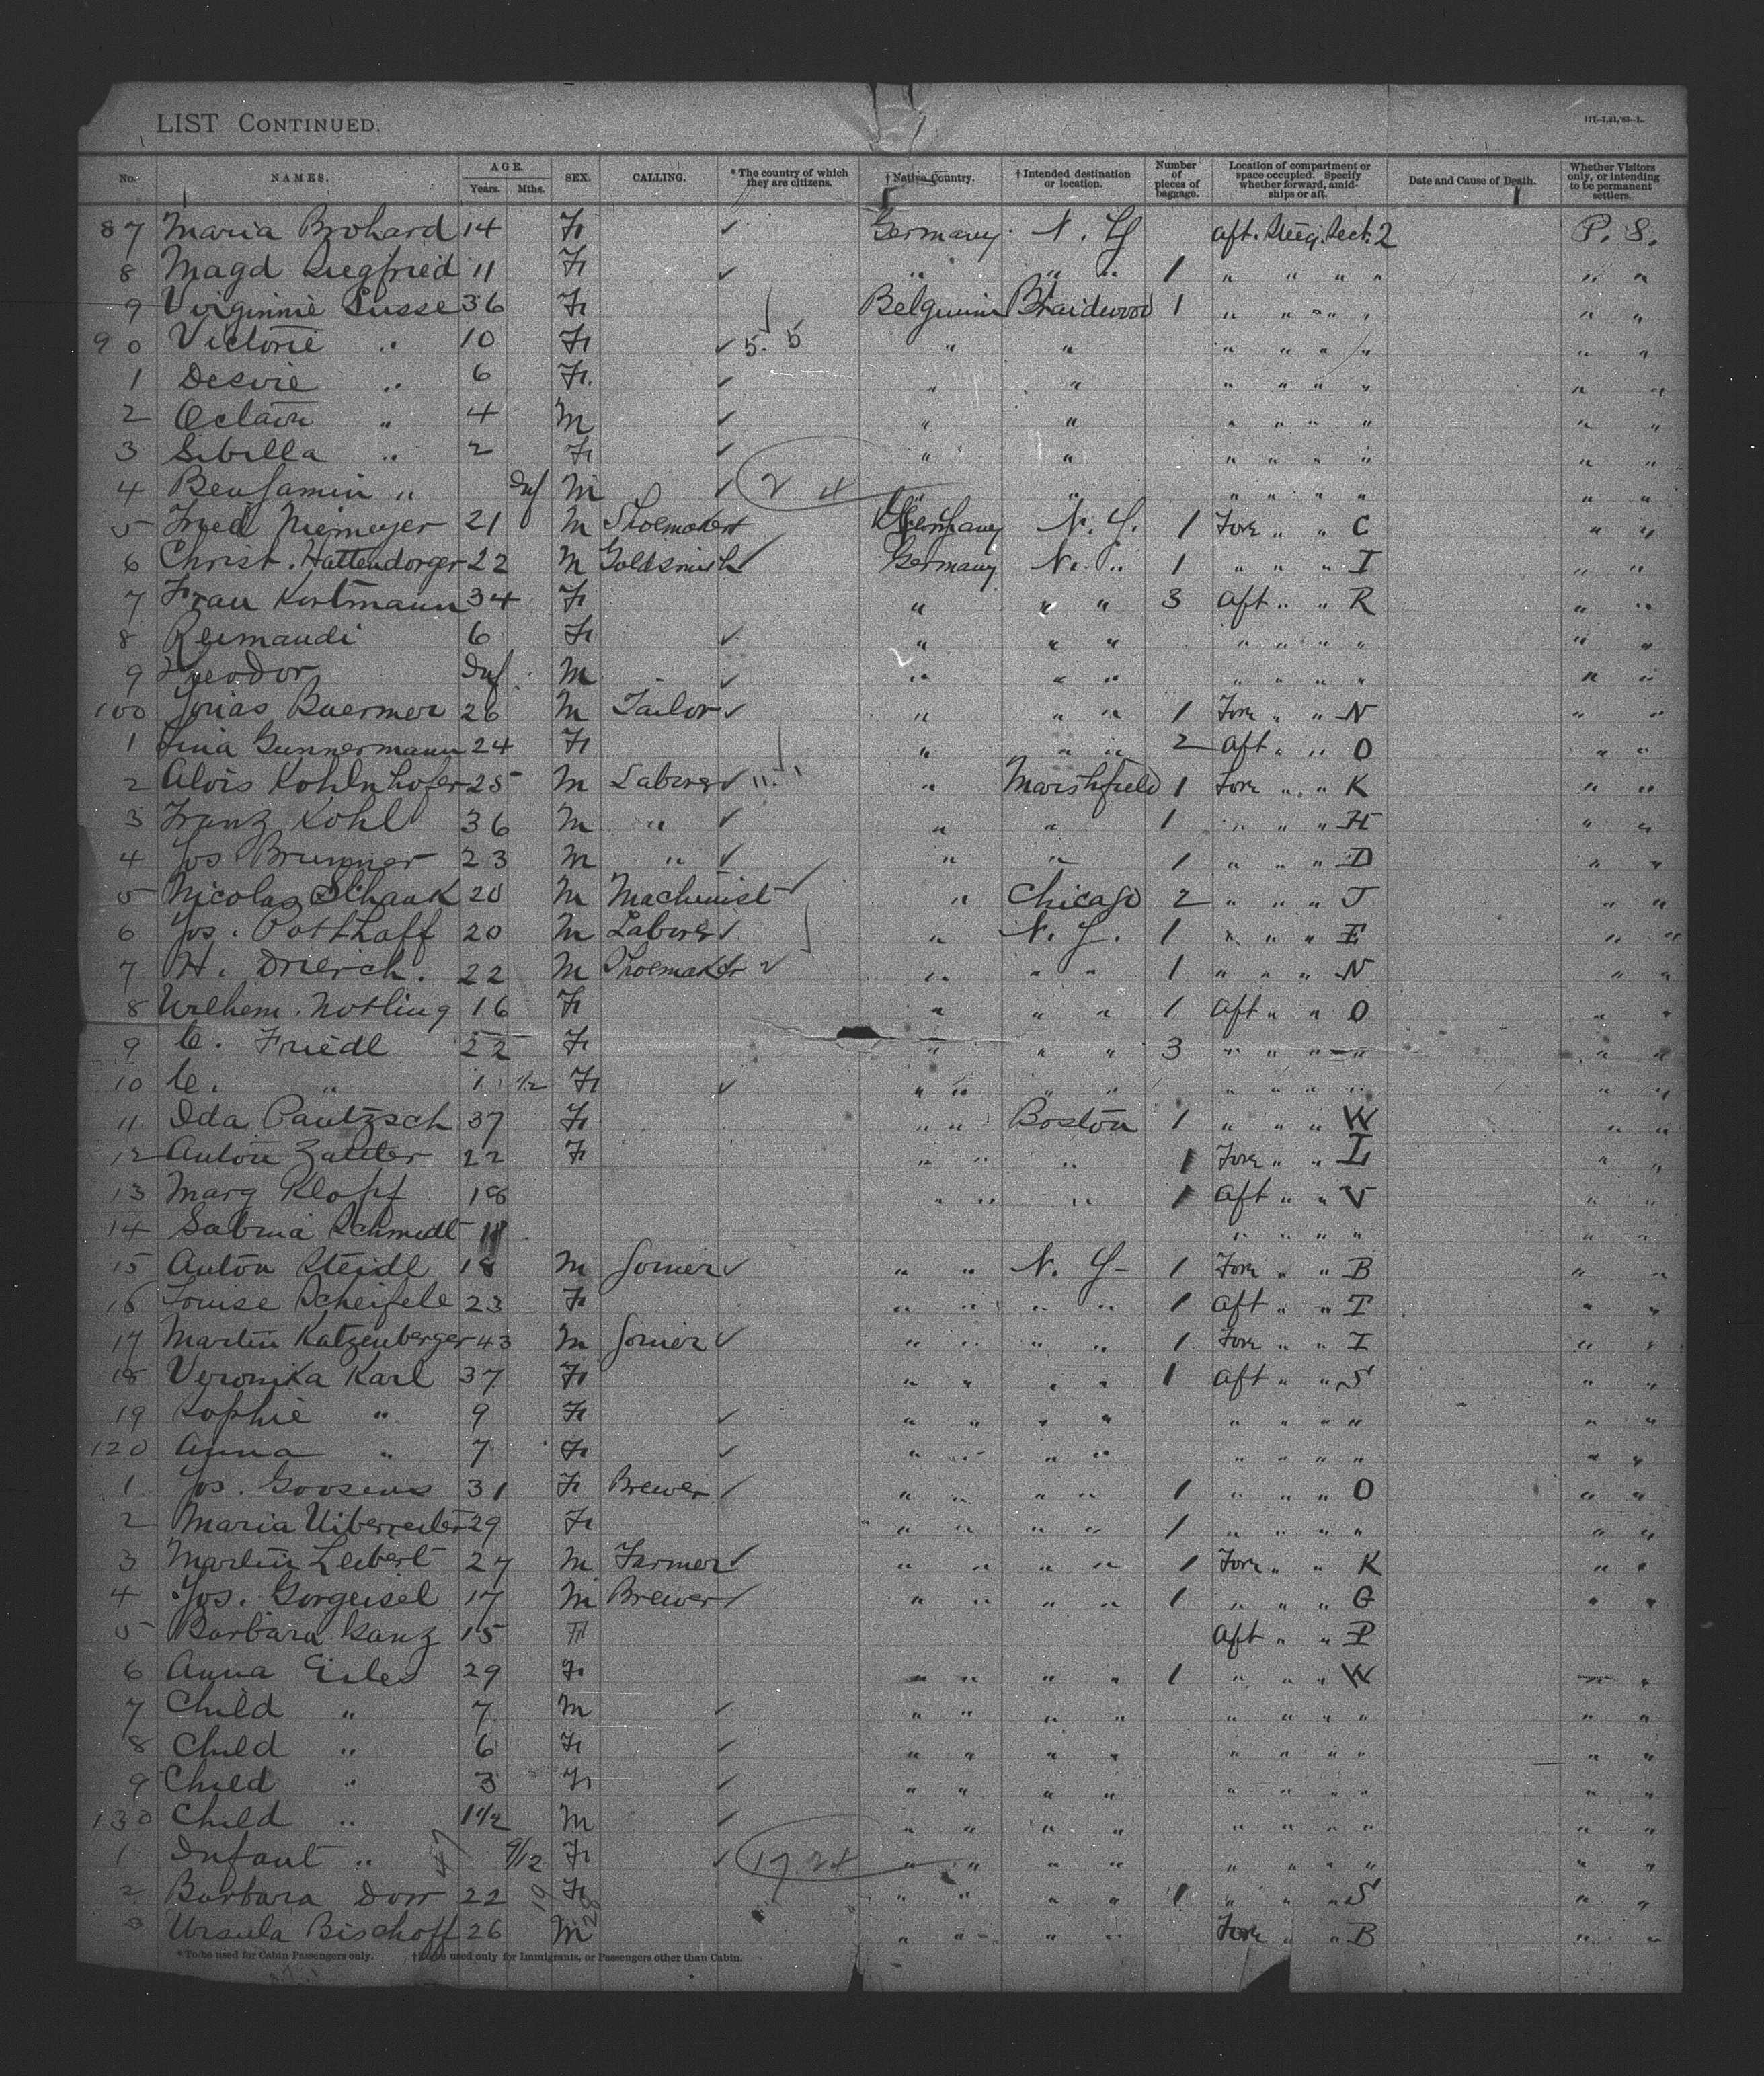 LIST CONTINUED.
No. NAMES. AGE. Years. Mths. SEX. CALLING. * The country of which they are citizens. † Native Country. † Intended destination or location. Number of pieces of baggage. Location of compartment or space occupied. Specify whether forward, amidships or aft. Date and Cause of Death. Whether Visitors only, or intending to be permanent settlers.
87 Maria Brohard 14 F ✓ Germany N. Y aft. Steeg. Sect. 2 P. S.
8 Magd Siegfried 11 F ✓ " " " 1 " " " " " "
9 Virginnie Susse 36 F Belguinn Braidwood 1 " " " " " "
90 Victorie " 10 F ✓ 5. 5 " " " " " " " "
1 Desvie " 6 F. ✓ " " " " " " " "
2 Octavn " 4 M ✓ " " " " " " " "
3 Sibilla " 2 F ✓ " " " " " " " "
4 Benjamin " Inf M ✓ 2 4 " " " " " " " "
5 Fried Niemeyer 21 M Shoemaker Germany N. Y. 1 Forw " " C " "
6 Christ. Hattendorger 22 M Goldsmith ✓ Germany N. " 1 " " " I " "
7 Frau Kortmann 34 F " " " 3 Aft " " R " "
8 Reimaudi 6 F ✓ " " " " " " " " "
9 Theodor Inf. M ✓ " " " " " " " " "
100 Buermer 26 M Tailor ✓ " " " 1 Forw " " N " "
1 Lina Gunnermann 24 F " " " 2 Aft " " O " "
2 Alois Kohlnhofer 25 M Laborer ✓ 11. " Marshfield 1 Forw " " K " "
3 Franz Kohl 36 M " ✓ " " 1 " " " H " "
4 Jos Brunner 23 M " ✓ " " 1 " " " D " "
5 Nicolas Schank 20 M Machinist ✓ " Chicago 2 " " " J " "
6 Jos. Potthaff 20 M Laborer ✓ " N. Y. 1 " " " E " "
7 H. Drierch. 22 M Shoemaker ✓ " " " 1 " " " N " "
8 Wilhem. Notling 16 F " " " 1 Aft " " O " "
9 C. Friedl 22 F " " " 3 " " " " " "
10 C. " 1 1/2 F ✓ " " " " " " " " " "
11 Ida Pautzsch 37 F " " Boston 1 " " " W " "
12 Anton 22 F " " " 1 Forw " " L " "
13 Marg Klopf 18 " " " 1 Aft " " V " "
14 Sabina Schmidt 11 " " " " " "
15 Anton Steidl 18 M Joiner ✓ " " N. Y- 1 Forw " " B " "
16 Louise Scheifele 23 F " " " " 1 Aft " " T " "
17 Martin Katzenberger 43 M Joiner ✓ " " " " 1 Forw " " I " "
18 Veronika Karl 37 F " " " " 1 Aft " " S " "
19 Sophie " 9 F ✓ " " " " " " " " " "
120 Anna " 7 F ✓ " " " " " " " " " "
1 Jos. Goosens 31 F Brewer ✓ " " " " 1 " " " O " "
2 Maria Uiberreiter 29 F " " " " 1 " " " " " "
3 Martin Leibert 27 M Farmer ✓ " " " " 1 Forw " " K " "
4 Jos. Gorgeisel 17 M Brewer ✓ " " " " 1 " " " G " "
5 Barbara Ganz 15 F Aft " " P
6 Anna Eiles 29 F " " " " 1 " " " W " "
7 Child " 7 M ✓ " " " " " " " " " "
8 Child " 6 F ✓ " " " " " " " " " "
9 Child " 3 F ✓ " " " " " " " " " "
130 Child " 1 1/2 M ✓ " " " " " " " " " "
1 Infant " 9/12 F ✓ 17 24 " " " " " " " " " "
2 Barbara Dorr 22 F " " " " 1 " " " S " "
3 Ursula Bischoff 26 M " " " " Forw " " B " "
* To be used for Cabin Passengers only. † To be used only for Immigrants, or Passengers other than Cabin.